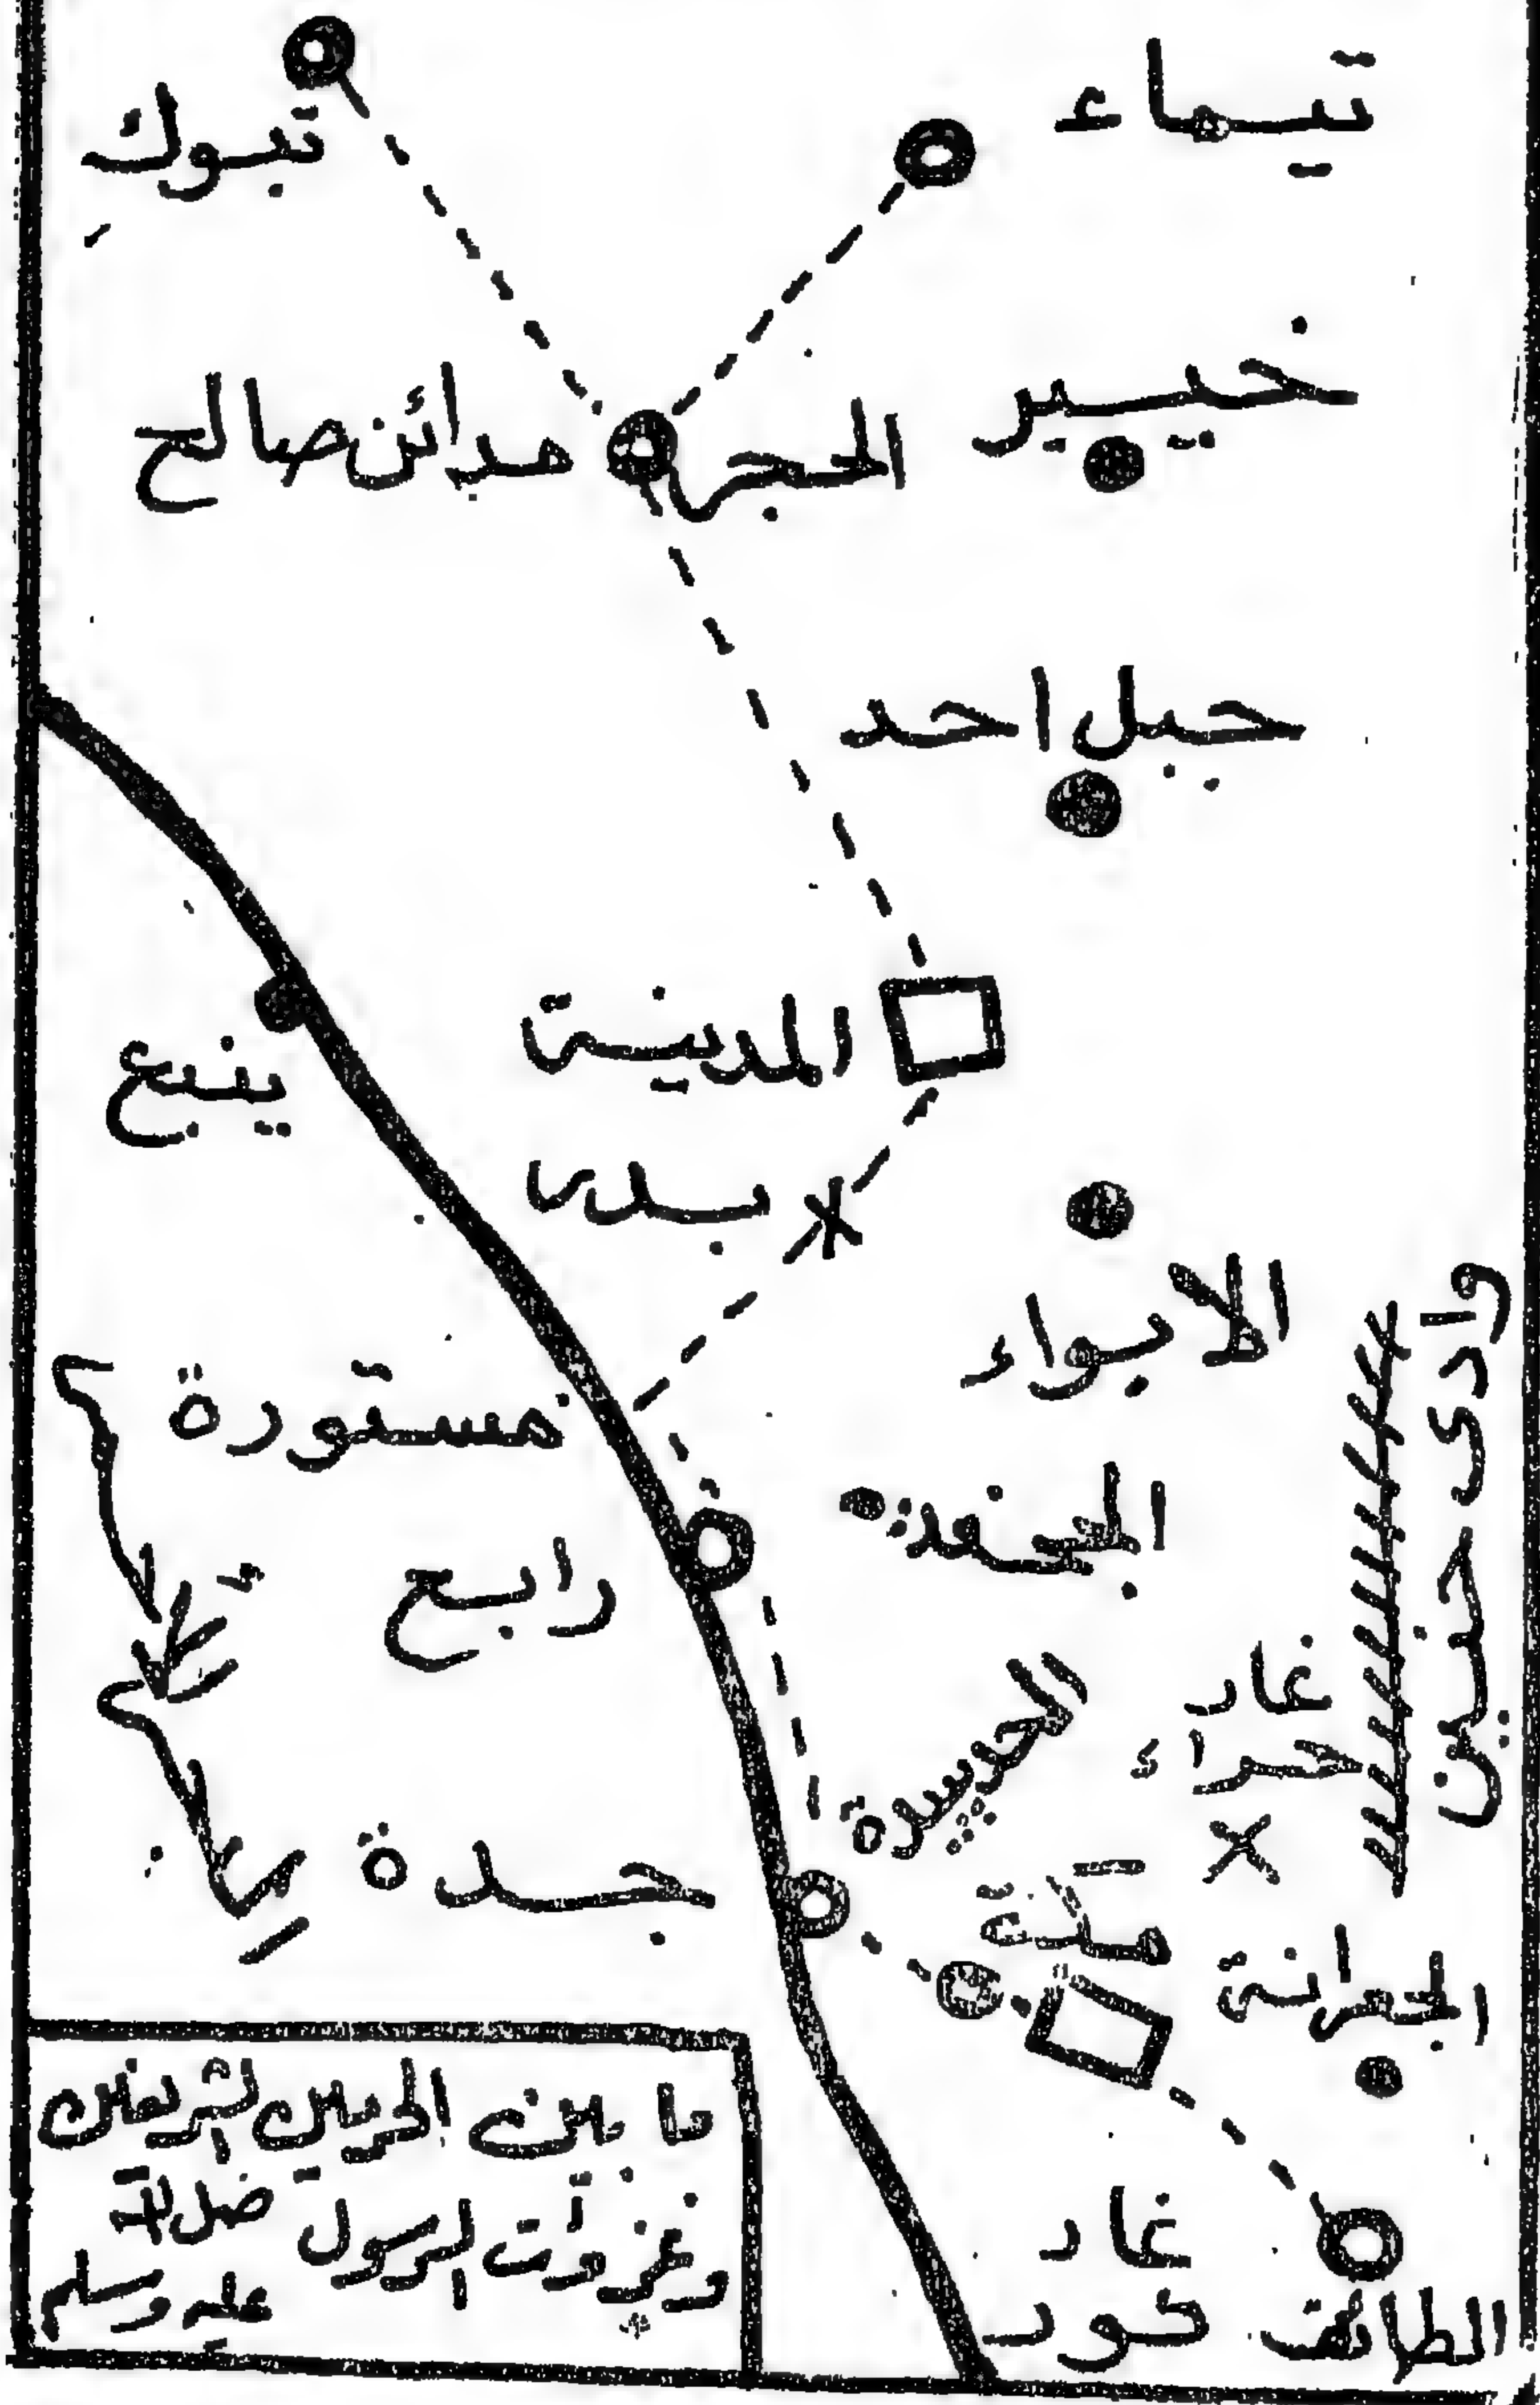 تيماء
تبوك
خيبر
الحجر مدائن صالح
جبل احد
المدينة
ينبع
بدر
الابواء
وادى حنين
مستورة
الجحفة
رابع
غار
حراء
جدة
مكة
الجعرانة
غار
ثور
الطائف
ما بين الحرمين الشريفين
وغزوات الرسول صلى الله
عليه وسلم